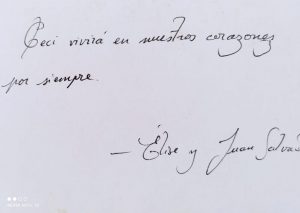 Ceci vivirá en nuestros corazones
por siempre.
— Élise y Juan Salvad